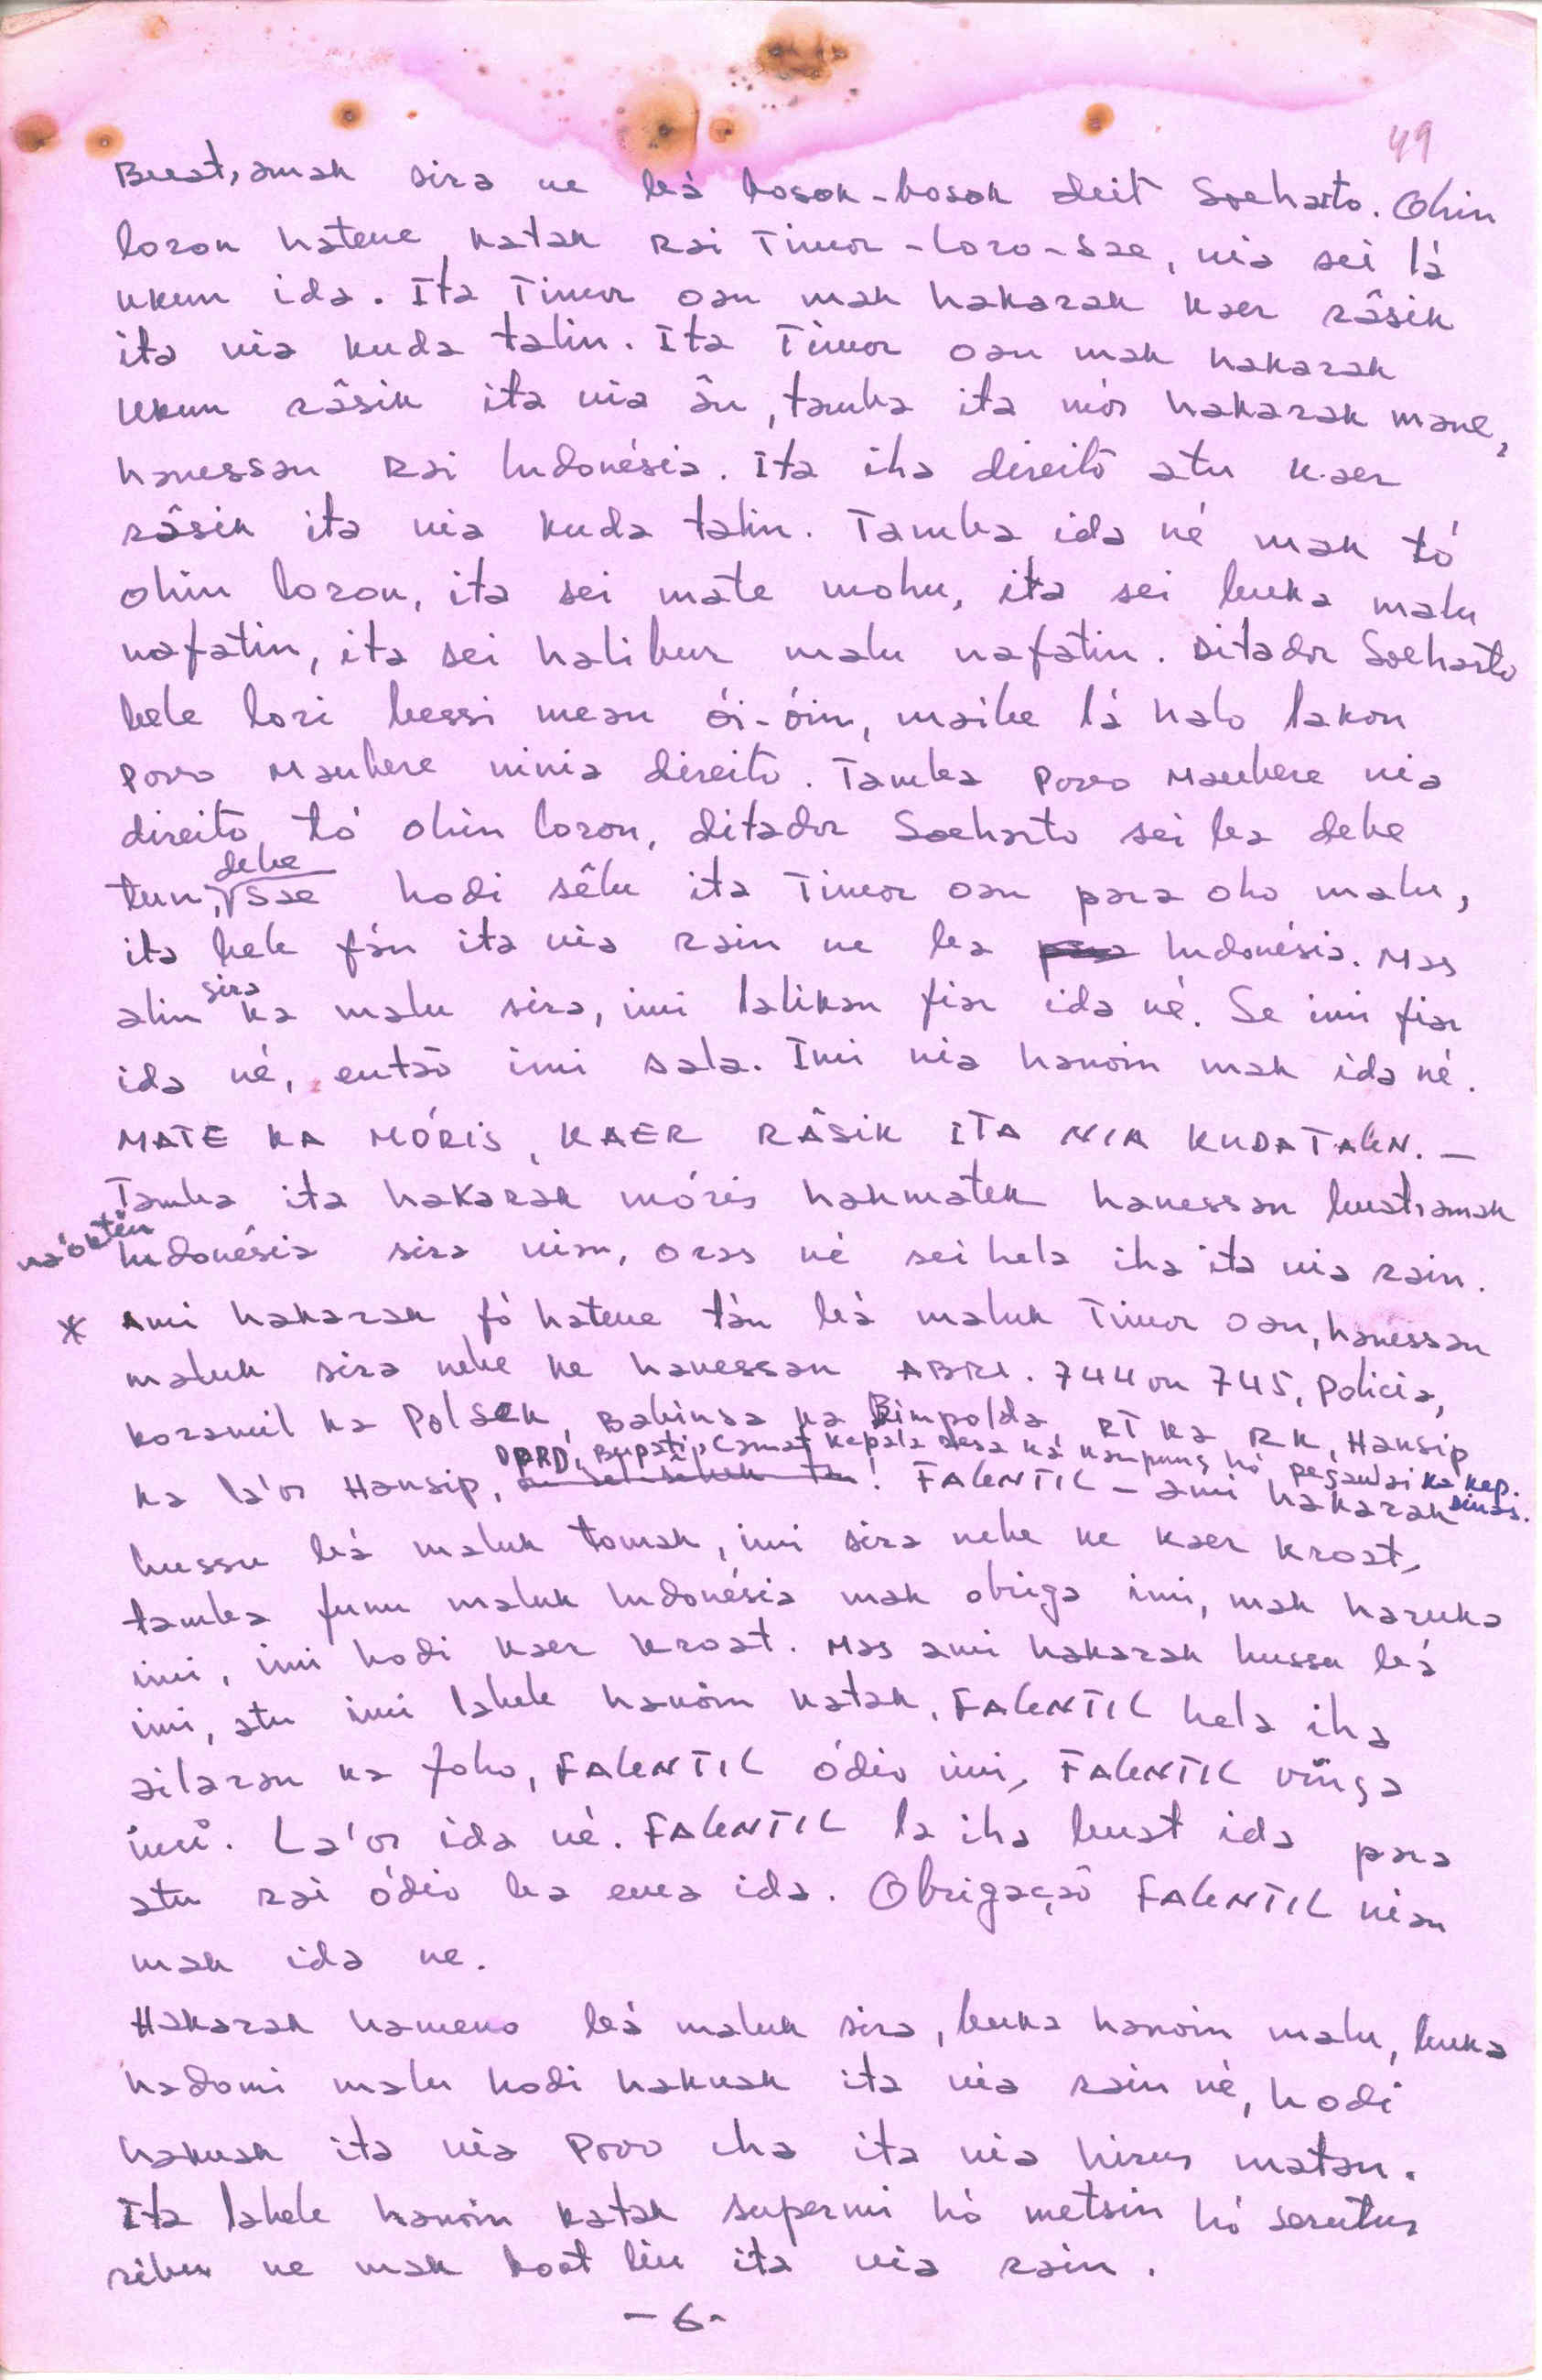 49
Buat, amak sira ne bá bosok-bosok deit Soeharto. Ohin
loron hatene katak Rai Timor-Loro-Sae, nia sei lá
ukun ida. Ita Timor oan mak hakarak kaer râsik
ita nia kuda talin. Ita Timor oan mak hakarak
ukun râsik ita nia ân, tamba ita mós hakarak mane,
hanessan Rai Indonésia. Ita iha direito atu kaer
râsik ita nia kuda talin. Tamba ida né mak tó
ohin loron, ita sei mate mohu, ita sei buka malu
nafatin, ita sei halibur malu nafatin. Ditador Soeharto
bele lori bessi mean ói-óin, maibe lá halo lakon
Povo Maubere ninia direito. Tamba Povo Maubere nia
direito, tó ohin loron, ditador Soeharto sei ba debe
tun, debe sae hodi sêlu ita Timor oan para oho malu,
ita bele fán ita nia rain ne ba Indonésia. Mas
alin sira ka malu sira, imi lalikan fiar ida né. Se imi fiar
ida né, então imi sala. Imi nia hanoin mak ida né.
MATE KA MÓRIS, KAER RÂSIK ITA NIA KUDATALIN. –
Tamba ita hakarak móris hakmatek hanessan buat, amak
na'oktén Indonésia sira nian, oras né sei hela iha ita nia rain.
* Ami hakarak fó hatene tán bá maluk Timor oan, hanessan
maluk sira nebe ne hanessan ABRI. 744 ou 745, Policia,
koramil ka Polsek, Babinsa ka Bimpolda, RT ka RK, Hansip
DPRD, Bupati, Camat Kepala desa ka kampung hó pegawai ka kep. dinas.
ka la'os Hansip, ! FALINTIL – ami hakarak
hussu bá maluk tomak, imi sira nebe ne kaer kroat,
tamba funu maluk Indonésia mak obriga imi, mak haruka
imi, imi hodi kaer kroat. Mas ami hakarak hussu bá
imi, atu imi labele hanoin katak, FALINTIL hela iha
ailaran ka foho, FALINTIL ódio imi, FALINTIL vinga
imi. La'os ida né. FALINTIL la iha buat ida para
atu rai ódio ba ema ida. Obrigação FALINTIL nian
mak ida ne.
Hakarak hameno bá maluk sira, buka hanoin malu, buka
hadomi malu hodi hakuak ita nia rain né, hodi
hakuak ita nia Povo iha ita nia hirus matan.
Ita labele hanoin katak supermi hó metsin hó serutus
ribu ne mak boot liu ita nia rain.
-6-